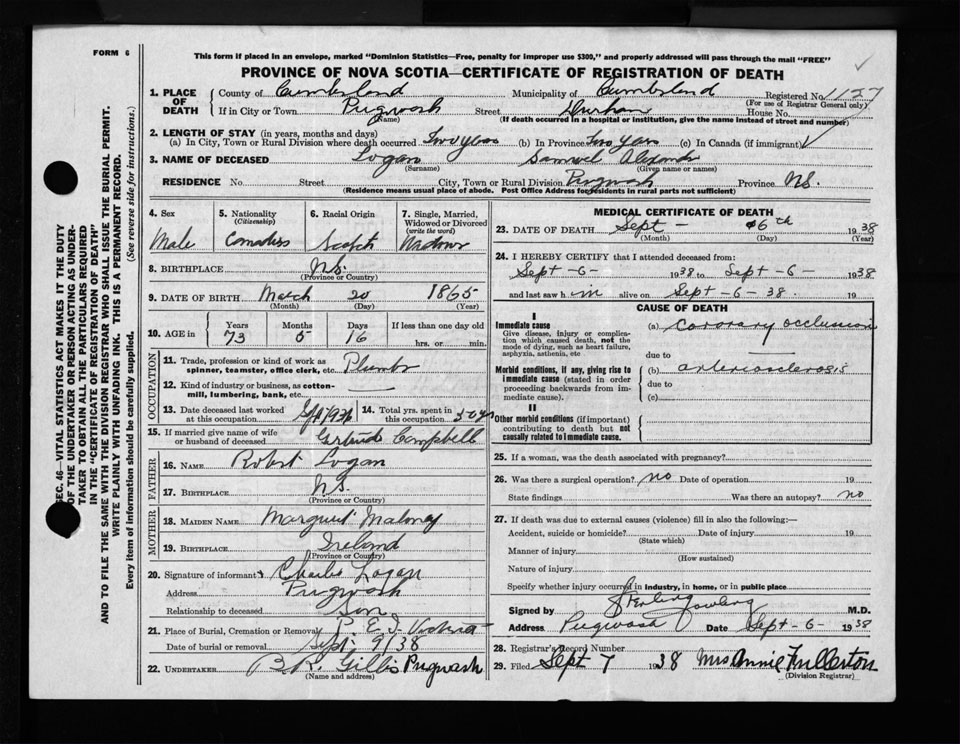 FORM 6
This form if placed in an envelope, marked "Dominion Statistics—Free, penalty for improper use $300," and properly addressed will pass through the mail "FREE"
PROVINCE OF NOVA SCOTIA—CERTIFICATE OF REGISTRATION OF DEATH
SEC. 46—VITAL STATISTICS ACT MAKES IT THE DUTY
OF THE UNDERTAKER OR PERSON ACTING AS UNDER-
TAKER TO OBTAIN ALL THE PARTICULARS REQUIRED
IN THE "CERTIFICATE OF REGISTRATION OF DEATH"
AND TO FILE THE SAME WITH THE DIVISION REGISTRAR WHO SHALL ISSUE THE BURIAL PERMIT.
WRITE PLAINLY WITH UNFADING INK. THIS IS A PERMANENT RECORD.
Every item of information should be carefully supplied. (See reverse side for instructions.)
1. PLACE OF DEATH County of Cumberland Municipality of Cumberland Registered No. 1127
(For use of Registrar General only)
If in City or Town Pugwash Street Durham House No.
(Name) (If death occurred in a hospital or institution, give the name instead of street and number)
2. LENGTH OF STAY (in years, months and days)
(a) In City, Town or Rural Division where death occurred Two years (b) In Province Two years (c) In Canada (if immigrant)
3. NAME OF DECEASED Logan Samuel Alexander
(Surname) (Given name or names)
RESIDENCE No. Street City, Town or Rural Division Pugwash Province N.S.
(Residence means usual place of abode. Post Office Address for residents in rural parts not sufficient)
4. Sex Male
5. Nationality (Citizenship) Canadian
6. Racial Origin Scotch
7. Single, Married, Widowed or Divorced (write the word) Widower
8. BIRTHPLACE N.S.
(Province or Country)
9. DATE OF BIRTH March 20 1865
(Month) (Day) (Year)
10. AGE in Years 73 Months 5 Days 16 If less than one day old hrs. or min.
OCCUPATION
11. Trade, profession or kind of work as spinner, teamster, office clerk, etc. Plumber
12. Kind of industry or business, as cotton-mill, lumbering, bank, etc.
13. Date deceased last worked at this occupation
14. Total yrs. spent in this occupation 50 yrs
15. If married give name of wife or husband of deceased Gertrude Campbell
FATHER
16. NAME Robert Logan
17. BIRTHPLACE N.S.
(Province or Country)
MOTHER
18. MAIDEN NAME Margaret Maloney
19. BIRTHPLACE Ireland
(Province or Country)
20. Signature of informant Charles Logan
Address Pugwash
Relationship to deceased Son
21. Place of Burial, Cremation or Removal P.E.I. Victoria
Date of burial or removal Sept. 9/38
22. UNDERTAKER B.R. Gillis Pugwash
(Name and address)
MEDICAL CERTIFICATE OF DEATH
23. DATE OF DEATH Sept - 6th 1938
(Month) (Day) (Year)
24. I HEREBY CERTIFY that I attended deceased from:
Sept -6- 1938 to Sept -6- 1938
and last saw h im alive on Sept -6-38. 19
CAUSE OF DEATH
I
Immediate cause
Give disease, injury or complica-
tion which caused death, not the
mode of dying, such as heart failure,
asphyxia, asthenia, etc
(a) Coronary occlusion
due to
Morbid conditions, if any, giving rise to
immediate cause (stated in order
proceeding backwards from im-
mediate cause).
(b) arteriosclerosis
due to
(c)
II
Other morbid conditions (if important)
contributing to death but not
causally related to immediate cause.
25. If a woman, was the death associated with pregnancy?
26. Was there a surgical operation? no Date of operation 19
State findings Was there an autopsy? no
27. If death was due to external causes (violence) fill in also the following:—
Accident, suicide or homicide? Date of injury 19
(State which)
Manner of injury
(How sustained)
Nature of injury
Specify whether injury occurred in industry, in home, or in public place
Signed by M.D.
Address Pugwash Date Sept -6- 1938
28. Registrar's Record Number
29. Filed Sept 7 1938 Mrs Annie Fullerton
(Division Registrar)